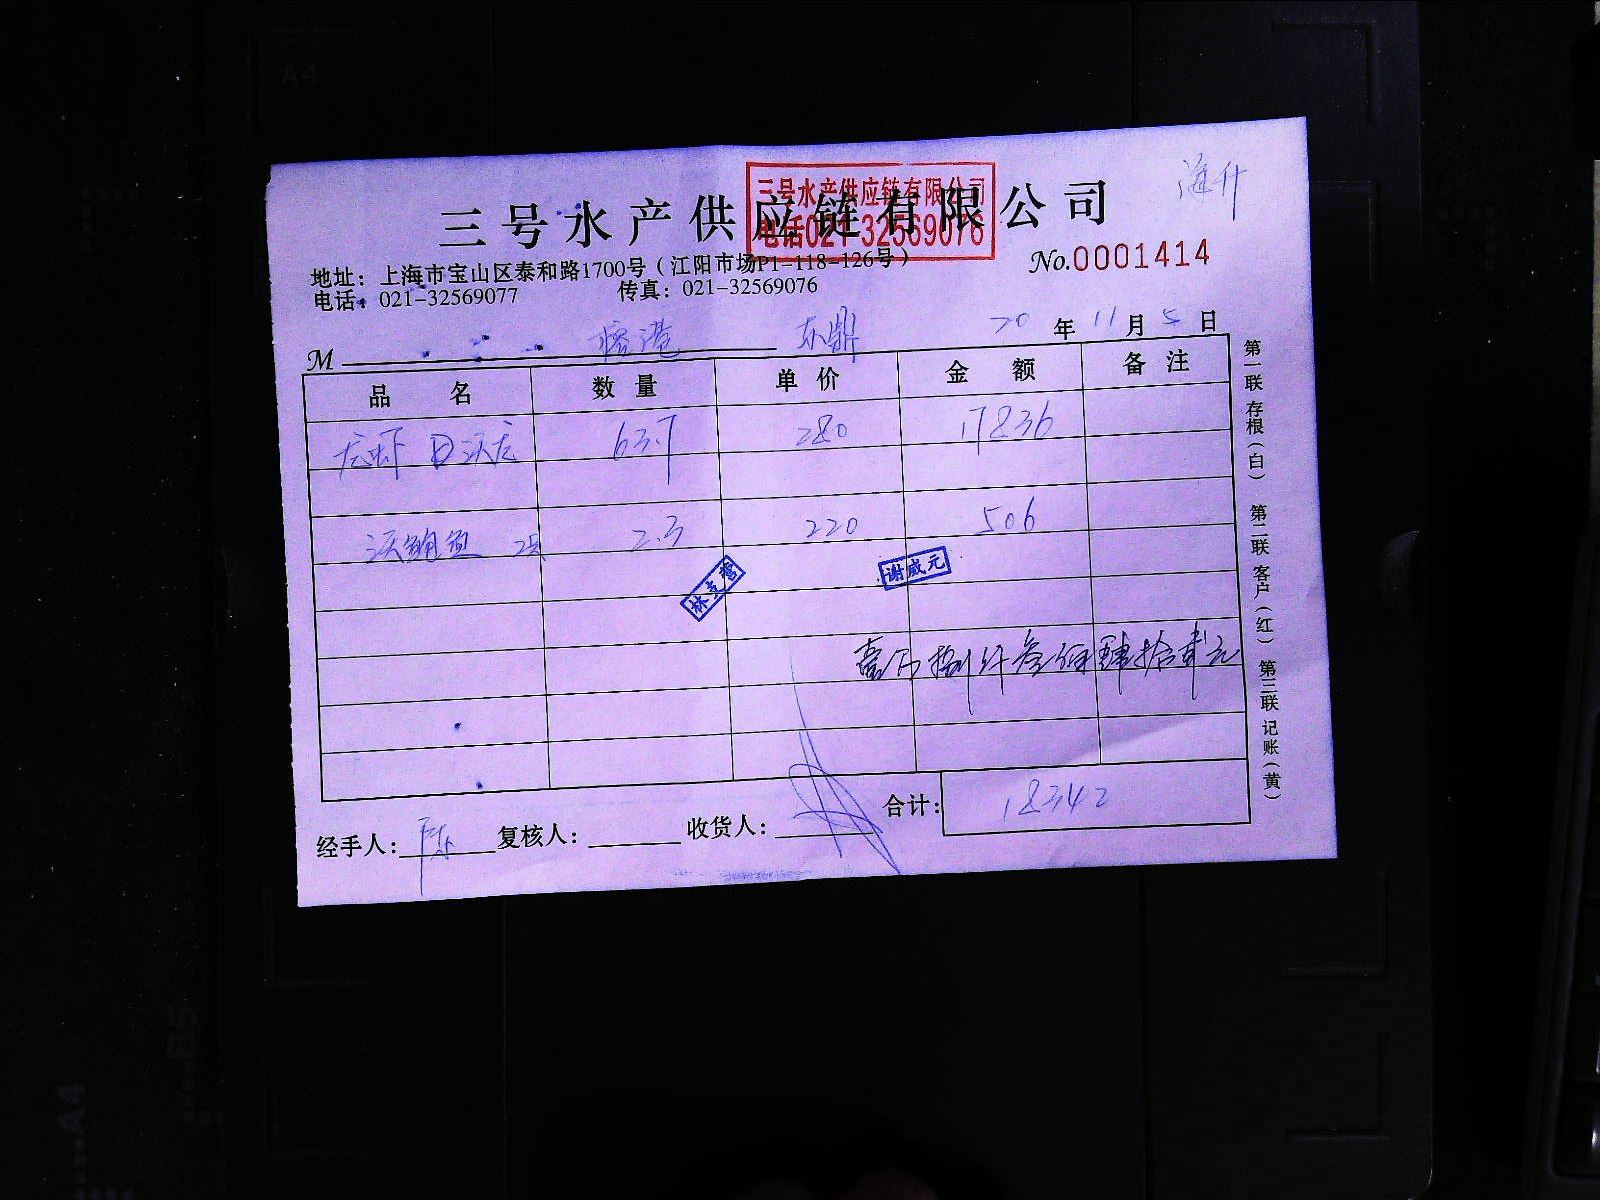 海什
三号水产供应链有限公司
三号水产供应链有限公司
电话021-32569076
No.0001414
地址：上海市宝山区泰和路1700号（江阳市场P1-118-126号）
电话：021-32569077 传真：021-32569076
M 榕港 东鼎 20年11月5日
品名 数量 单价 金额 备注
龙虾 沃龙 63.7 280 17836
沃鲍鱼 2.3 220 506
谢威元
壹万捌仟叁佰肆拾贰元
合计：18342
经手人：陈 复核人： 收货人：
第一联 存根（白） 第二联 客户（红） 第三联 记账（黄）
A4
B5
A4